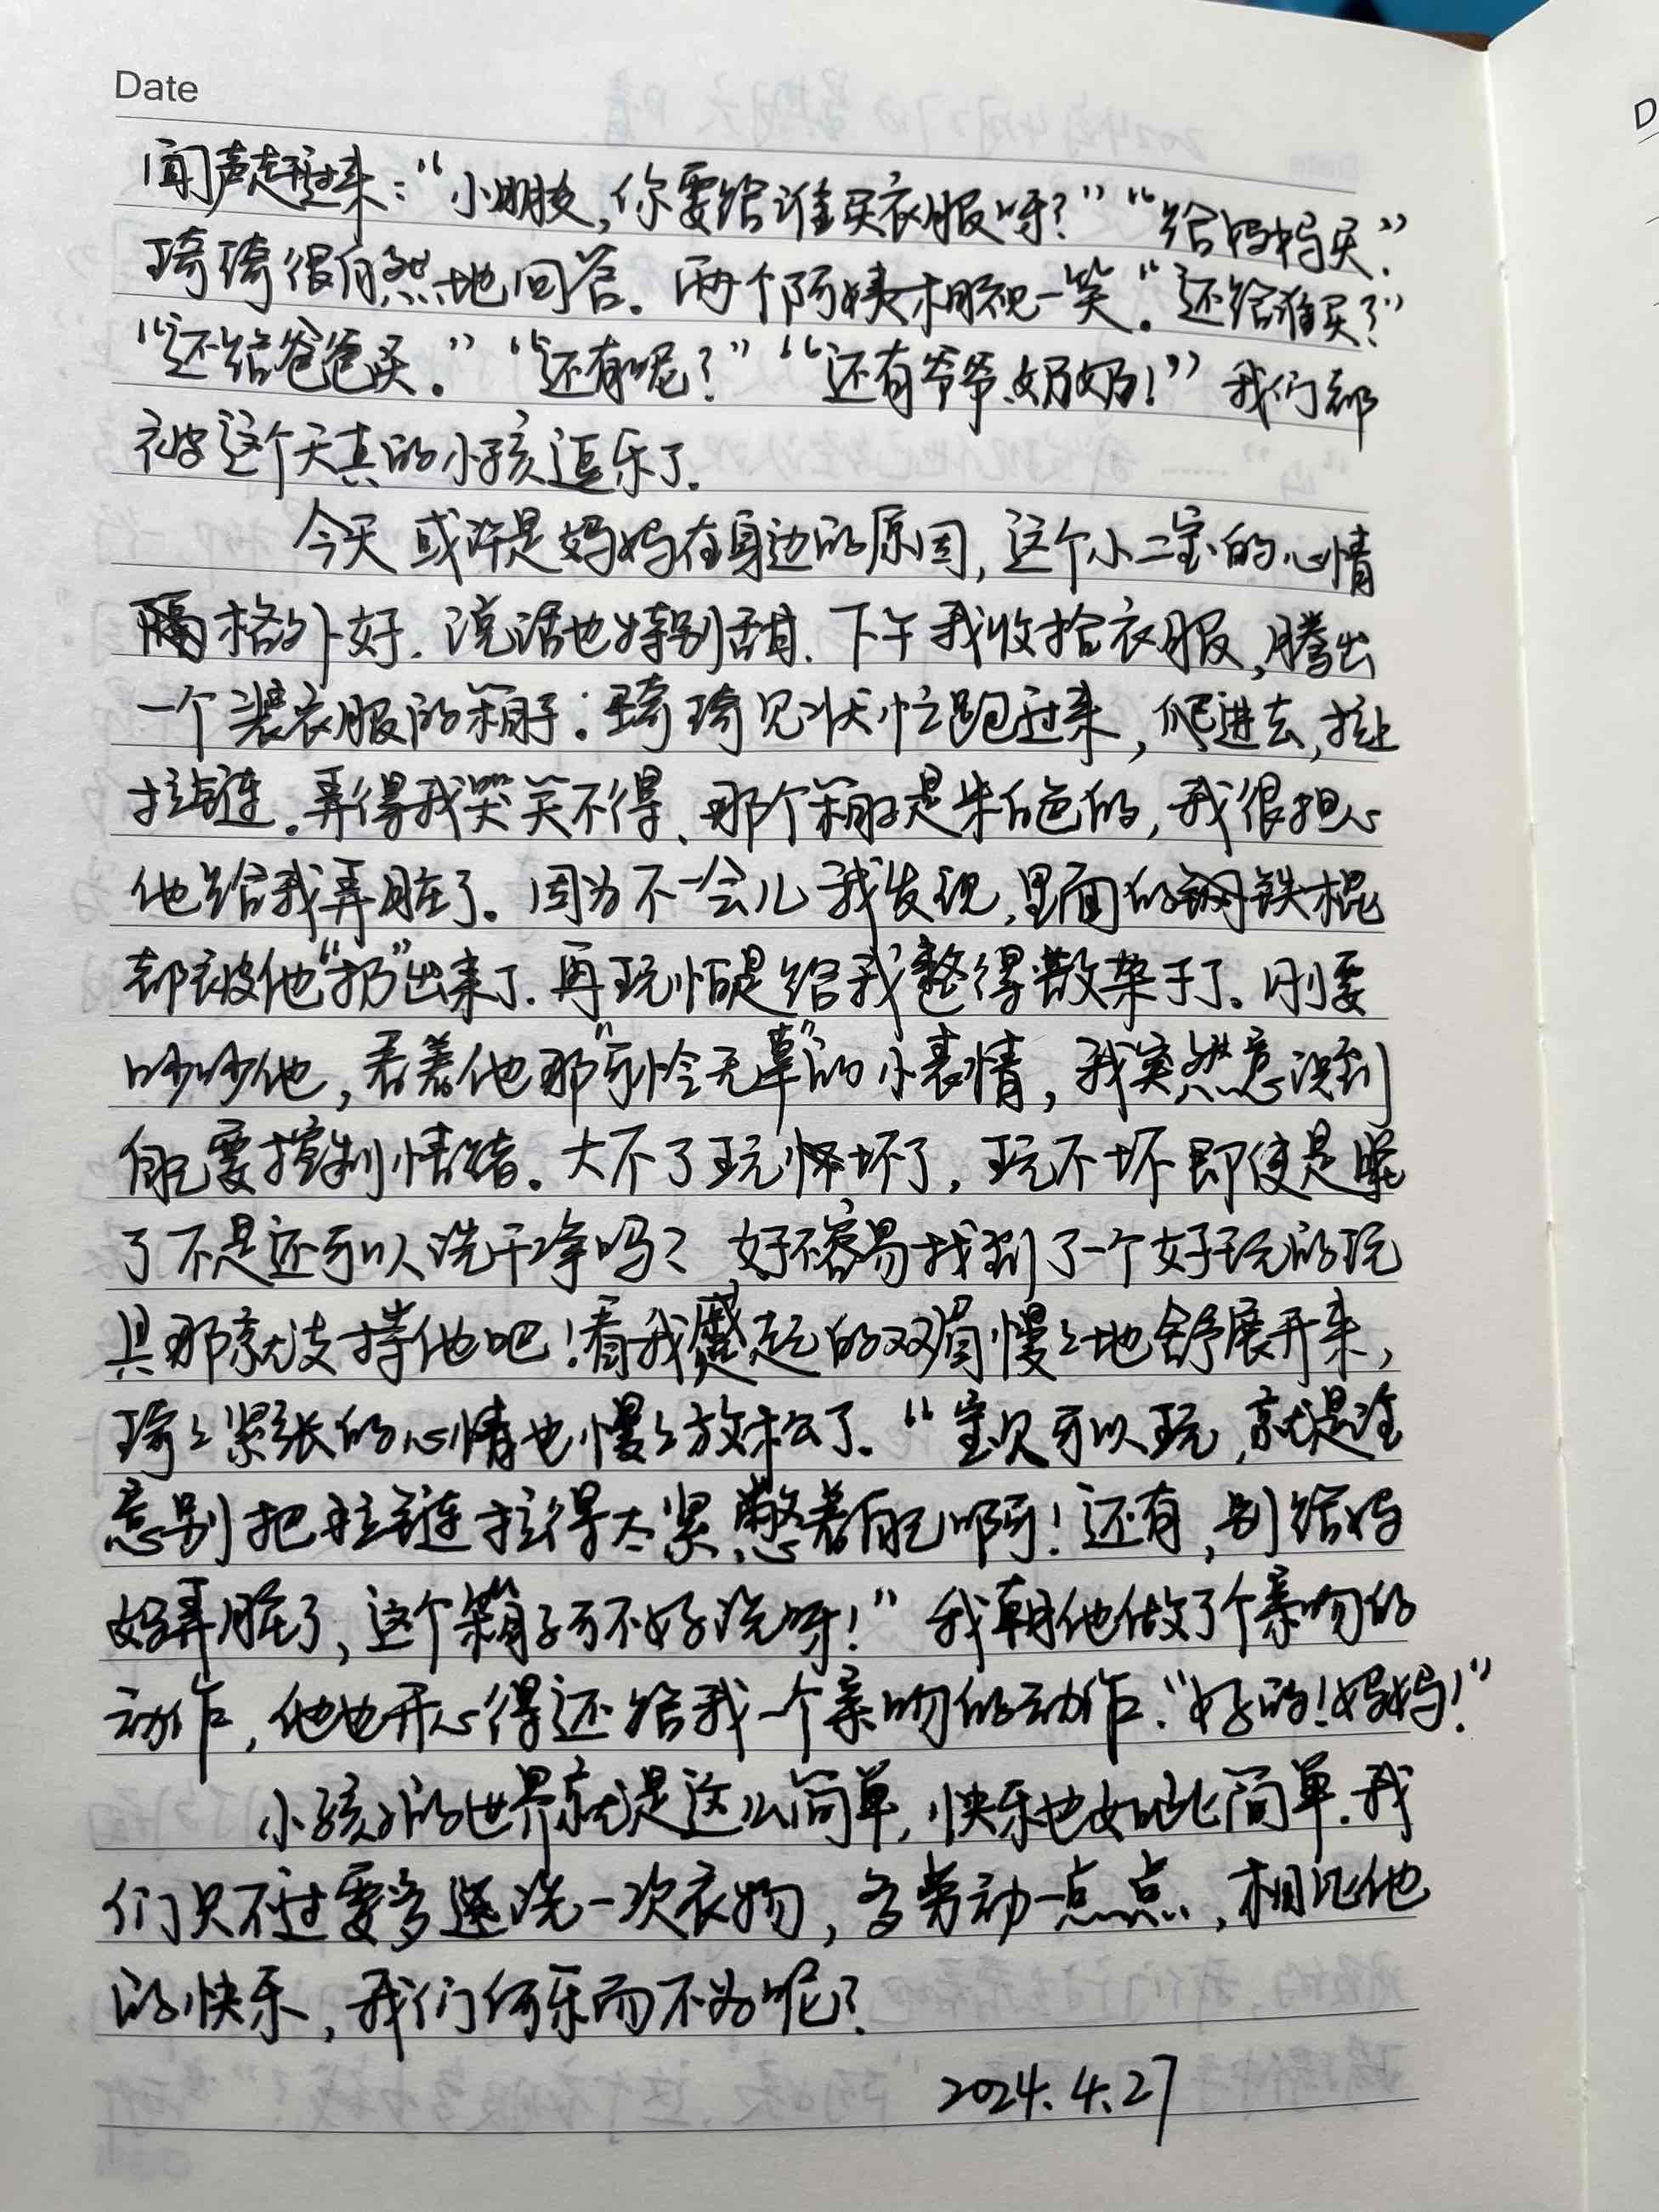 Date
闻声赶过来：“小朋友，你要给谁买衣服呀？”“给妈妈买”.
琦琦很自然地回答。两个阿姨相视一笑。“还给谁买？”
“还给爸爸买。”“还有呢？”“还有爷爷奶奶！”我们都
被这个天真的小孩逗乐了.
今天或许是妈妈在身边的原因，这个小二宝的心情
格外好.说话也特别甜.下午我收拾衣服，腾出
一个装衣服的箱子.琦琦见状忙跑过来，爬进去，拉上
拉链。弄得我哭笑不得、那个箱子是米白色的，我很担心
他给我弄脏了。因为不一会儿我发现，里面的钢铁棍
都被他“扔”出来了.再玩怕是给我整得散架子了。刚要
吵吵他，看着他那“可怜无辜”的小表情，我突然意识到
自己要控制情绪。大不了玩坏了，玩不坏即使是脏
了不是还可以洗干净吗？好不容易找到了一个好玩的玩
具那就支持他吧！看我蹙起的双眉慢々地舒展开来，
琦々紧张的心情也慢々放松了。“宝贝可以玩，就是注
意别把拉链拉得太紧，憋着自己啊！还有，别给妈
妈弄脏了，这个箱子可不好洗呀！”我朝他做了个亲吻的
动作，他也开心得还给我一个亲吻的动作.“好的！妈妈！”
小孩子的世界就是这么简单，快乐也如此简单.我
们只不过要多洗一次衣物，多劳动一点点，相比他
的快乐，我们何乐而不为呢？
2024.4.27